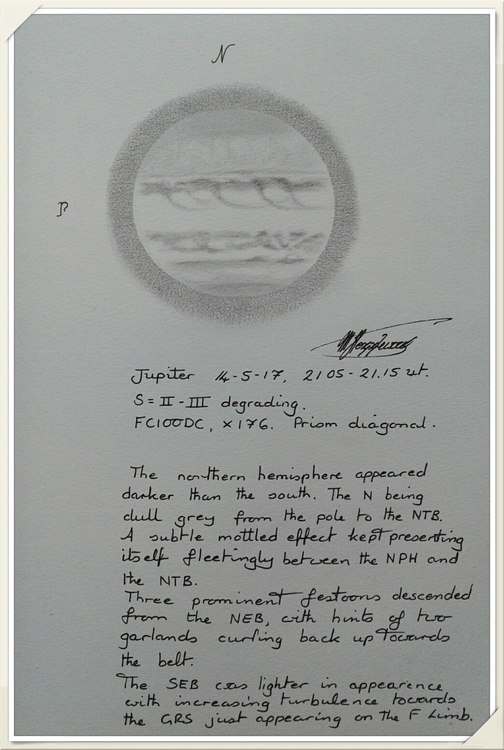 N
P
Jupiter 14-5-17, 2105-21.15 ut.
S = II-III degrading.
FC100DC, x176. Prism diagonal.
The northern hemisphere appeared
darker than the south. The N being
dull grey from the pole to the NTB.
A subtle mottled effect kept presenting
itself fleetingly between the NPH and
the NTB.
Three prominent festoons descended
from the NEB, with hints of two
garlands curling back up towards
the belt.
The SEB was lighter in appearence
with increasing turbulence towards
the GRS just appearing on the F limb.